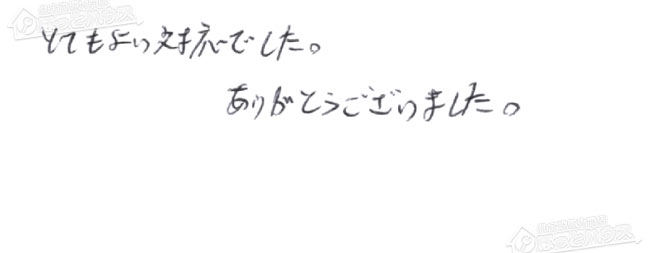 とてもよい対応でした。
ありがとうございました。